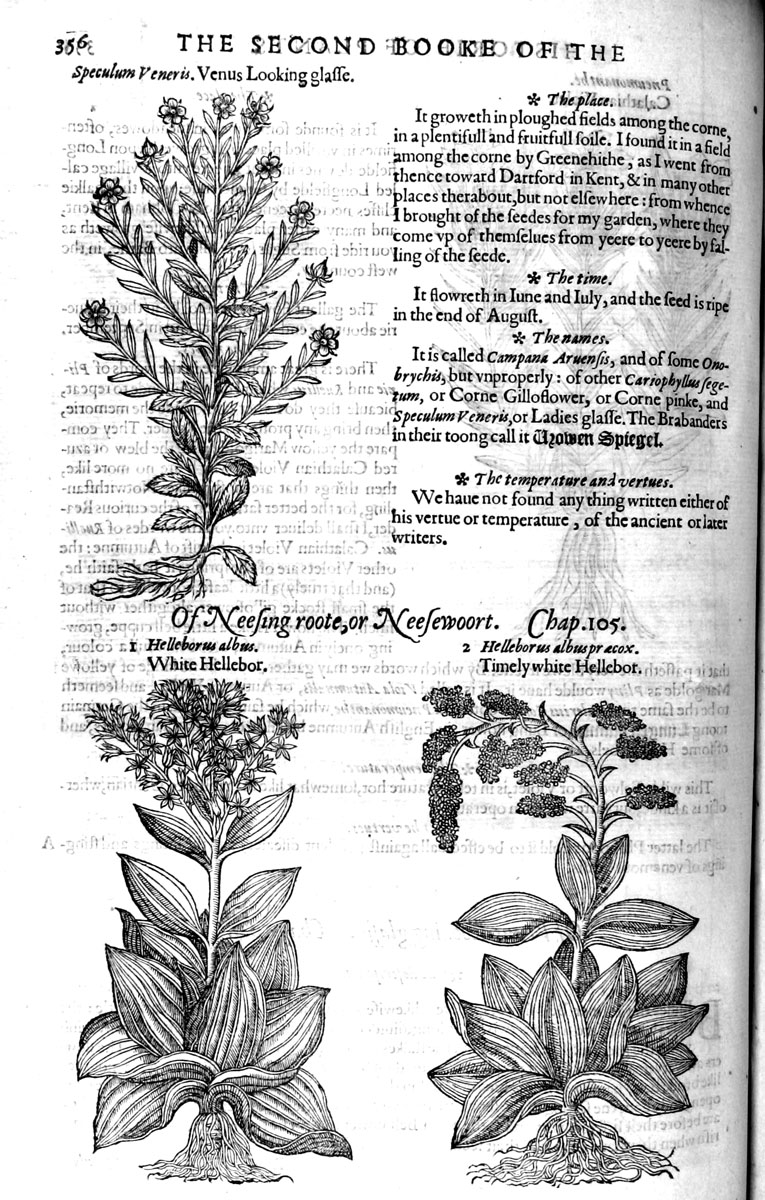 356
THE SECOND BOOKE OF THE
Speculum Veneris. Venus Looking glaſſe.
* The place.
It groweth in ploughed fields among the corne,
in a plentifull and fruitfull ſoile. I found it in a field
among the corne by Greenehithe, as I went from
thence toward Dartford in Kent, & in many other
places therabout, but not elſewhere: from whence
I brought of the ſeedes for my garden, where they
come vp of themſelues from yeere to yeere by fal-
ling of the ſeede.
* The time.
It flowreth in Iune and Iuly, and the ſeed is ripe
in the end of Auguſt.
* The names.
It is called Campana Aruenſis, and of ſome Ono-
brychis, but vnproperly: of other Cariophyllus ſege-
tum, or Corne Gilloflower, or Corne pinke, and
Speculum Veneris, or Ladies glaſſe. The Brabanders
in their toong call it Urowen Spiegel.
* The temperature and vertues.
We haue not found any thing written either of
his vertue or temperature, of the ancient or later
writers.
Of Neeſing roote, or Neeſewoort. Chap. 105.
1 Helleborus albus.
White Hellebor.
2 Helleborus albus præcox.
Timely white Hellebor.